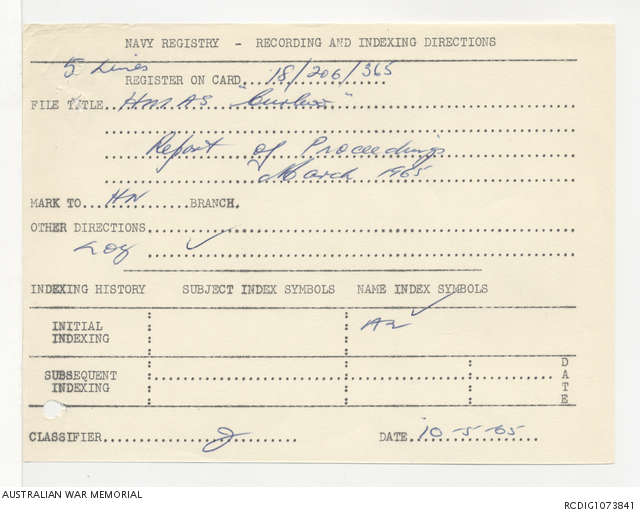 NAVY REGISTRY - RECORDING AND INDEXING DIRECTIONS
5 Lines
REGISTER ON CARD...18/206/365
FILE TITLE...HMAS "Curlew"
Report of Proceedings
March 1965
MARK TO...HN...BRANCH.
OTHER DIRECTIONS
✓
INDEXING HISTORY SUBJECT INDEX SYMBOLS NAME INDEX SYMBOLS
INITIAL INDEXING A2 ✓
SUBSEQUENT INDEXING DATE
CLASSIFIER...J... DATE...10-5-65
AUSTRALIAN WAR MEMORIAL RCDIG1073841